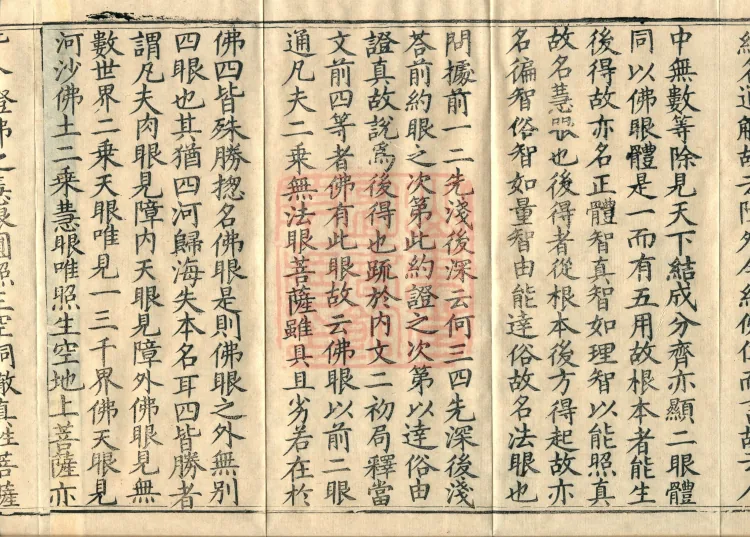 中無數等除見天下結成分齊亦顯二眼體
同以佛眼體是一而有五用故根本者能生
後得故亦名正體智真智如理智以能照真
故名慧眼也後得者從根本後方得起故亦
名徧智俗智如量智由能達俗故名法眼也
問據前一二先淺後深云何三四先深後淺
荅前約眼之次第此約證之次第以達俗由
證真故說爲後得也䟽於内文二初局釋當
文前四等者佛有此眼故云佛眼以前二眼
通凡夫二乘無法眼菩薩雖具且劣若在於
佛四皆殊勝揔名佛眼是則佛眼之外無別
四眼也其猶四河歸海失本名耳四皆勝者
謂凡夫肉眼見障内天眼見障外佛眼見無
數世界二乘天眼唯見一三千界佛天眼見
河沙佛土二乘慧眼唯照生空地上菩薩亦